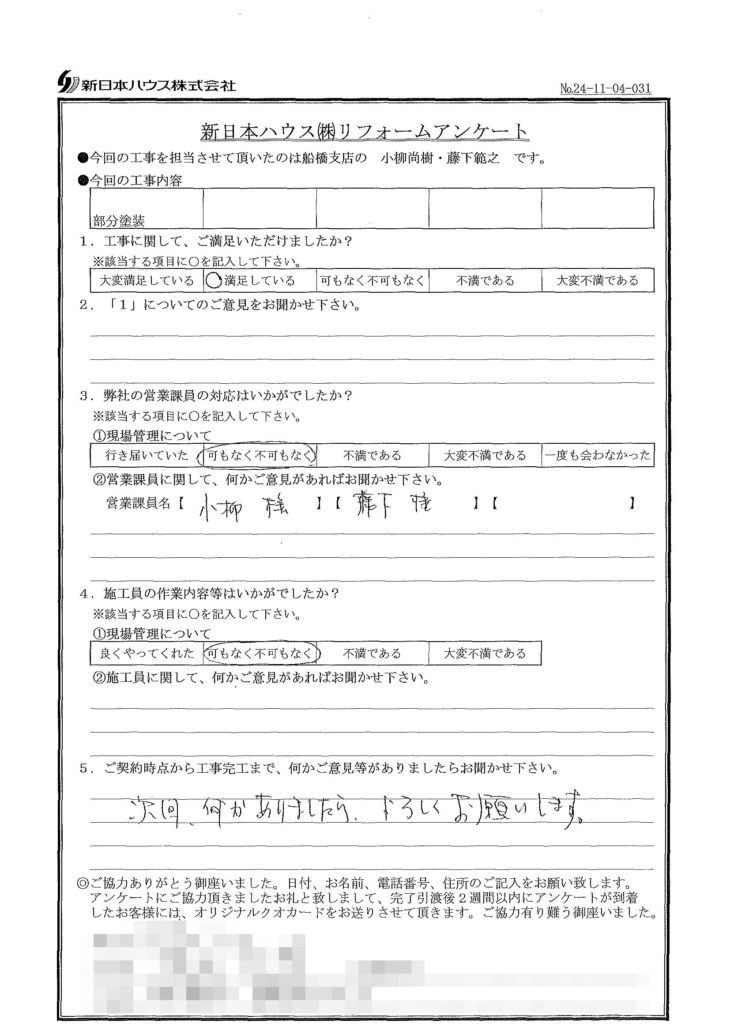 新日本ハウス株式会社
No.24-11-04-031
新日本ハウス㈱リフォームアンケート
●今回の工事を担当させて頂いたのは船橋支店の 小柳尚樹・藤下範之 です。
●今回の工事内容
部分塗装
1．工事に関して、ご満足いただけましたか？
※該当する項目に○を記入して下さい。
大変満足している ○満足している 可もなく不可もなく 不満である 大変不満である
2．「1」についてのご意見をお聞かせ下さい。
3．弊社の営業課員の対応はいかがでしたか？
※該当する項目に○を記入して下さい。
①現場管理について
行き届いていた 可もなく不可もなく 不満である 大変不満である 一度も会わなかった
②営業課員に関して、何かご意見があればお聞かせ下さい。
営業課員名【 小柳 様 】【 藤下 様 】【 】
4．施工員の作業内容等はいかがでしたか？
※該当する項目に○を記入して下さい。
①現場管理について
良くやってくれた 可もなく不可もなく 不満である 大変不満である
②施工員に関して、何かご意見があればお聞かせ下さい。
5．ご契約時点から工事完工まで、何かご意見等がありましたらお聞かせ下さい。
次回、何かありましたら、よろしくお願いします。
◎ご協力ありがとう御座いました。日付、お名前、電話番号、住所のご記入をお願い致します。
アンケートにご協力頂きましたお礼と致しまして、完了引渡後２週間以内にアンケートが到着
したお客様には、オリジナルクオカードをお送りさせて頂きます。ご協力有り難う御座いました。